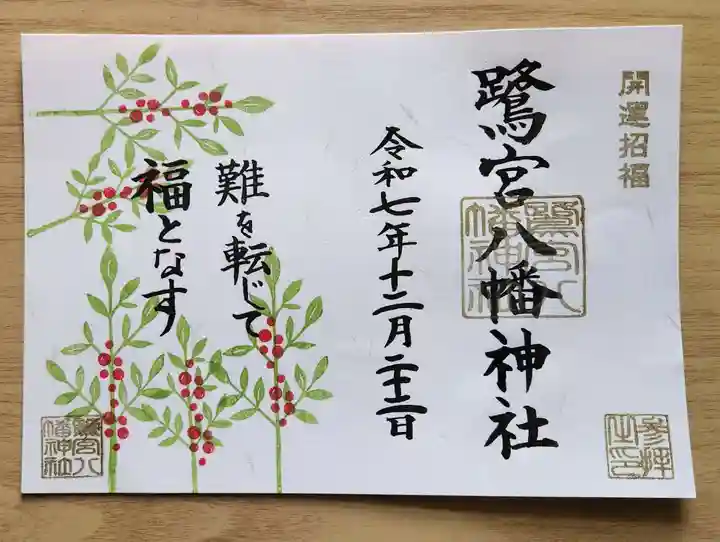 開運招福
鷺宮八幡神社
鷺宮八幡神社
参拝之印
令和七年十二月二十二日
難を転じて
福となす
鷺宮八幡神社